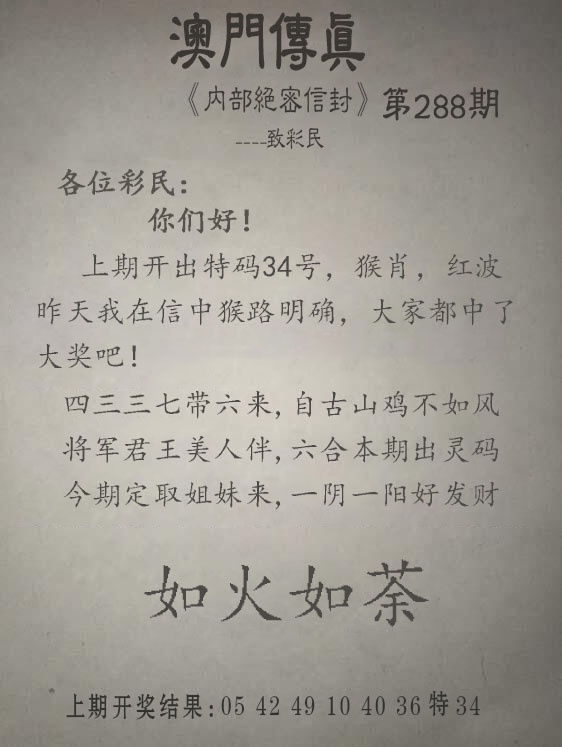 澳門傳眞
《内部絕密信封》第288期
----致彩民
各位彩民：
你们好！
上期开出特码34号，猴肖，红波
昨天我在信中猴路明确，大家都中了
大奖吧！
四三三七带六来,自古山鸡不如风
将军君王美人伴,六合本期出灵码
今期定取姐妹来,一阴一阳好发财
如火如荼
上期开奖结果:05 42 49 10 40 36特34